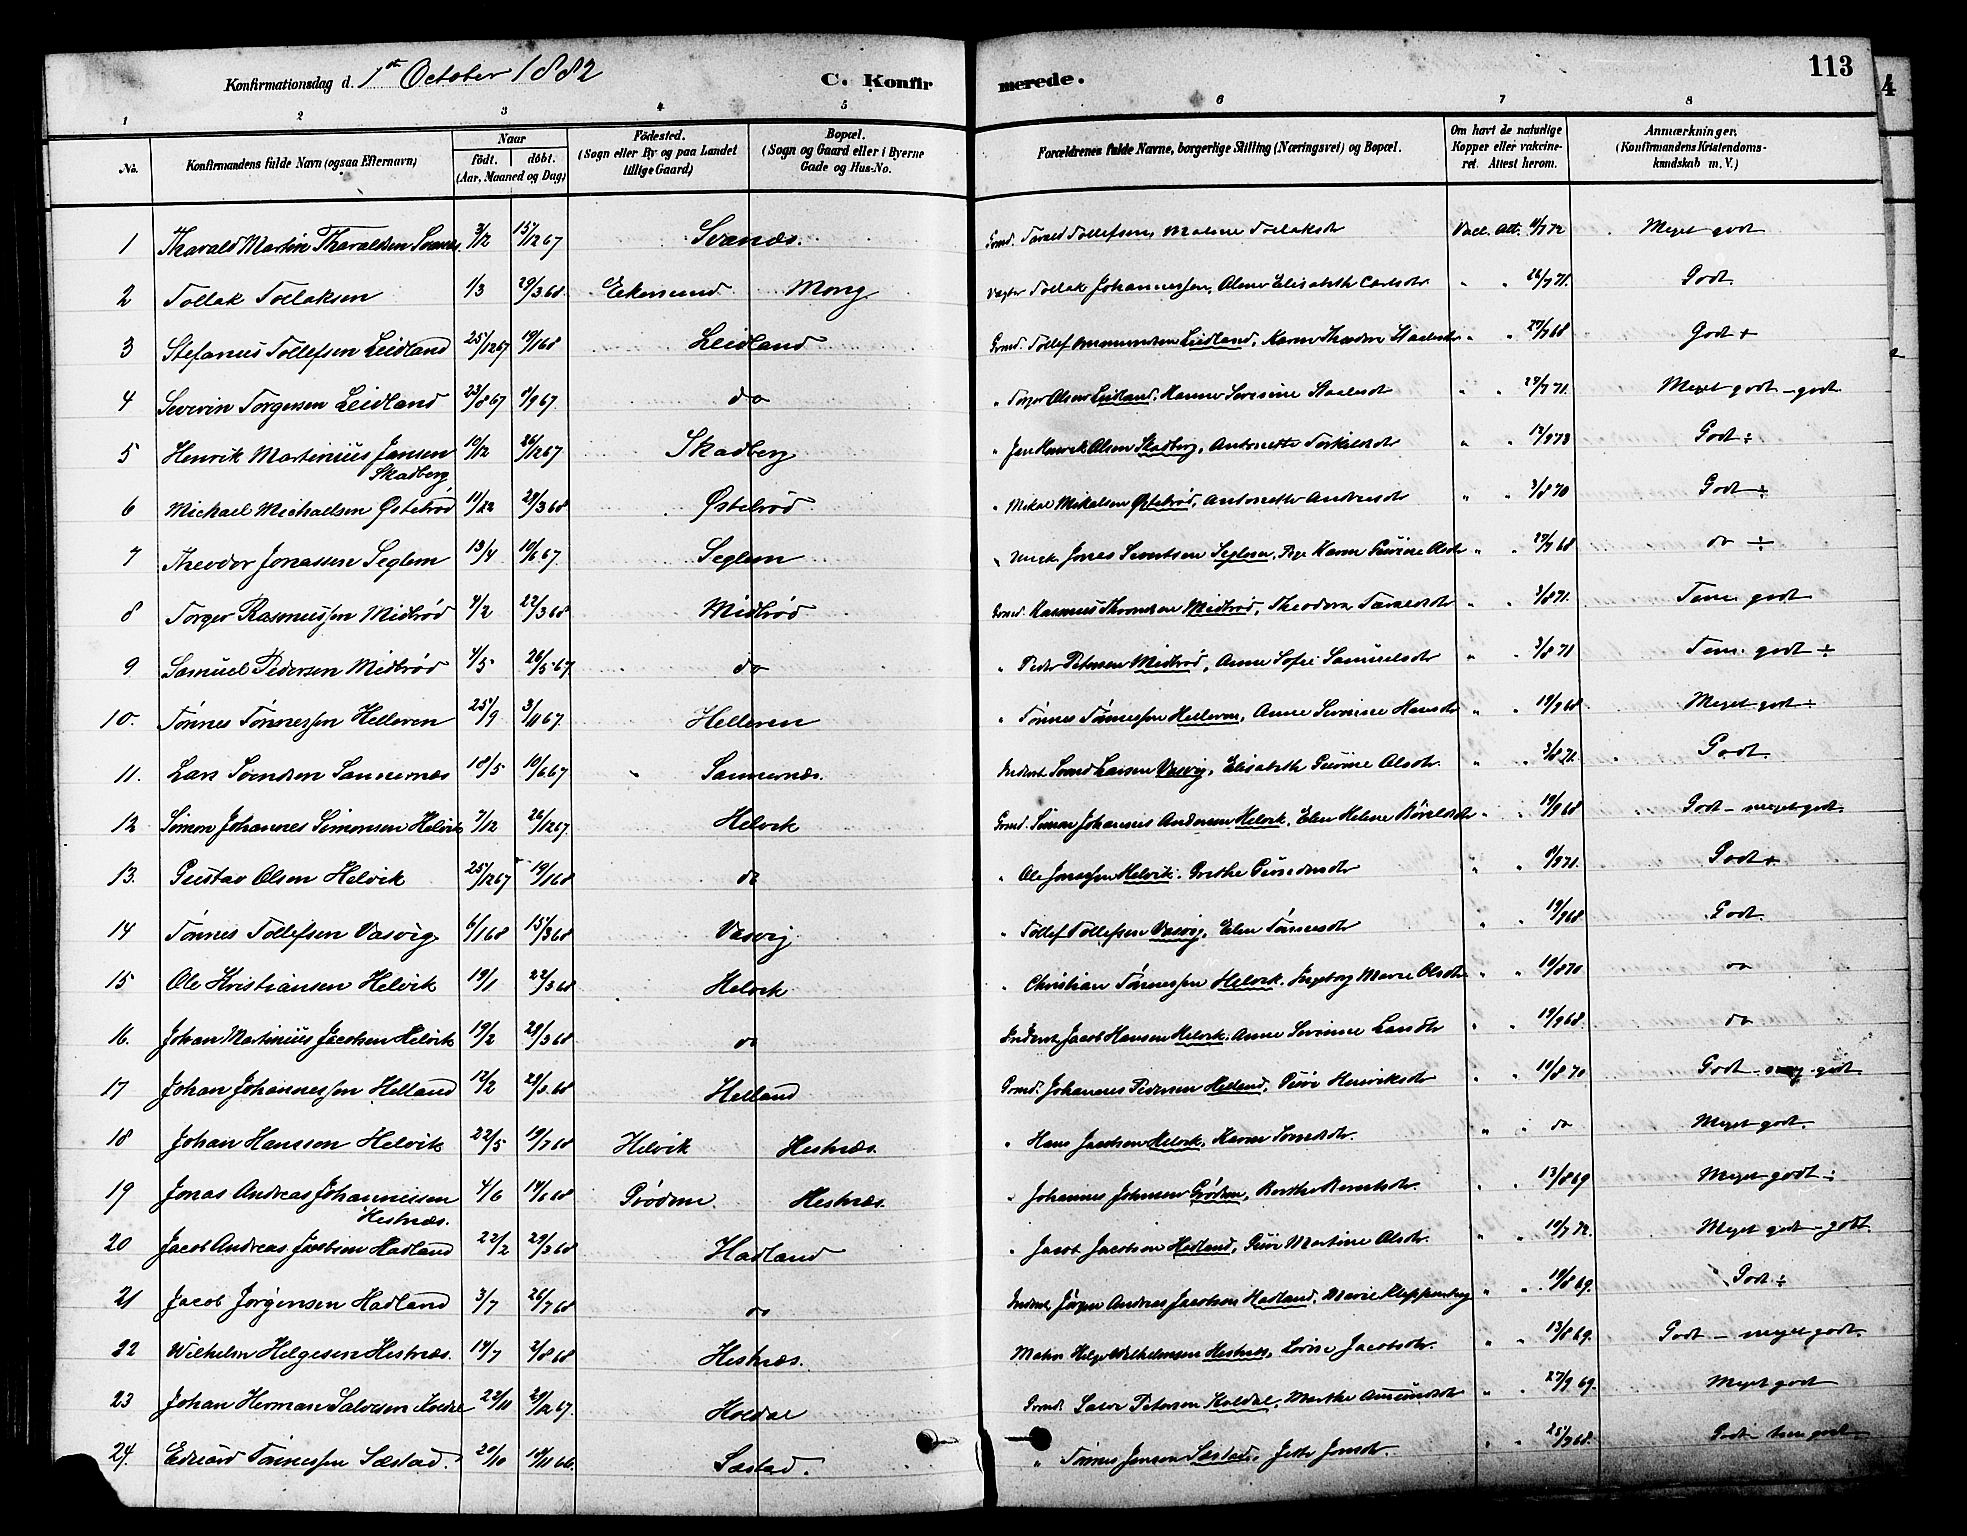 Konfirmationsdag d. 1st October 1882 C. Konfirmerede. 113
1 2 3 4 5 6 7 8
No. Konfirmandens fulde Navn (ogsaa Efternavn) Naar født. døbt. (Aar, Maaned og Dag) Fødested. (Sogn eller By og paa Landet tillige Gaard) Bopæl. (Sogn og Gaard eller i Byerne Gade og Hus-No. Forældrenes fulde Navne, borgerlige Stilling (Næringsvei) og Bopæl. Om havt de naturlige Kopper eller vakcineret. Attest herom. Anmærkninger. (Konfirmandens Kristendomskundskab m. V.)
1 Tharald Martin Tharaldsen 3/12 15/12 67 Svanæs. Tarald Tollefsen, Malene Tollaksdr Vacc. Att. Meget godt
2 Tollak Tollaksen 1/3 29/3 68 Ekersund Mong Tollak Johannessen, Elisabeth Carlsdr 26/7 71. Godt
3 Stefanus Tollefsen Leidland 25/12 67 19/1 68 Leidland Grmd. Tollef Ommundsen Leidland, Karen 27/9 68 Godt +
4 Severin Torgersen Leidland 23/8 67 8/9 67 do " Torger Olsen Leidland, Hanne Severine 27/7 71. Meget godt - godt
5 Henrik Martinius Jansen Skadberg 10/12 26/12 67 Skadberg " Jan Henrik Olsen Skadberg, Antonette Torkildsdr Godt ÷
6 Michael Michaelsen Østebrød 29/3 68 Østebrød. " Mikal Mikalsen Østebrød, Antonette Andreasdr 3/8 70 Godt ÷
7 Theodor Jonassen Seglem 13/4 10/6 67 Seglem Jonas Sivertsen Seglem, Pige Karen Gurine Olsdr 27/9 68 do ÷
8 Torger Rasmussen Midbrød 4/2 22/3 68 Midbrød Grmd. Rasmus Thronsen Midbrød, Theodora Taraldsdr 3/8 71. Tem. godt
9 Samuel Pedersen Midbrød 4/5 26/5 67. do " Peder Petersen Midbrød, Anne Sofie Samuelsdr 3/8 71 Tem. godt ÷
10. Tönnes Tönnessen Helleren 25/9 3/11 67 Helleren " Tönnes Tönnessen Helleren, Anne Severine Hansdr 19/9 68 Meget godt ÷
11. Lars Svendsen Sannernæs 18/5 10/6 67 Sannernæs. Inderst. Svend Larsen Vasvig, Elisabeth Gurine Olsdr. 3/8 71. Godt.
12 Simon Johannes Simonsen Helvik 7/12 26/12 67 Helvik Grmd. Simon Johannes Andersen Helvik, Elen Helene 19/9 68 Godt - meget godt.
13. Gustav Olsen Helvik 25/12 67 19/1 68 do " Ole Jonassen Helvik, Grethe Godt +
14 Tönnes Tollefsen Vasvig 6/1 68 15/3 68 Vasvig " Tollef Tollefsen Vasvig, Elen Tönnesdr 19/9 68. Godt.
15 Ole Kristiansen Helvik 19/1 22/3 68 Helvik " Christian Tönnessen Helvik, Ingeborg Marie Olsdr 19/8 70 do
16. Johan Martinius Jacobsen Helvik 19/2 29/3 68 do Inderst. Jacob Hansen Helvik, Anne Severine 19/9 68. do
17 Johan Johannessen Helland 12/2 29/3 68 Helland Grmd. Johannes Pedersen Helland, Henriksdr 19/8 70 Godt - meg. godt
18 Johan Hansson Helvik 22/5 19/7 68 Helvik Hestnæs. " Hans Jacobsen Helvik, Karen do Meget godt.
19 Jonas Andreas Johannessen Hestnæs. 4/6 14/6 68 Grödem. Hestnæs. " Johannes Johnsen Grödem, Berthe Berntsdr. 13/8 69 Meget godt ÷
20 Jacob Andreas Jacobsen Hadland 22/2 29/3 68 Hadland " Jacob Jacobsen Hadland, Martine Olsdr. 19/7 72. Meget godt - godt.
21 Jacob Jörgensen Hadland 3/7 26/7 68 do Inderst. Jörgen Andreas Jacobsen Hadland, Marie 19/8 69. Godt ÷
22 Wilhelm Helgesen Hestnæs. 14/7 2/8 68 Hestnæs. Helge Wilhelmsen Hestnæs, Lovise Jacobsdr. 13/8 69. Godt - meget godt.
23 Johan Herman Salvesen Koldal 22/11 29/12 67. Koldal Grmd. Salve Petersen Koldal, Marthe 27/9 69. Meget godt
24. Edvard Tönnessen Sæstad. 20/10 18/11 66. Sæstad. " Tönnes Jensen Sæstad, 25/9 68. Godt - tem. godt